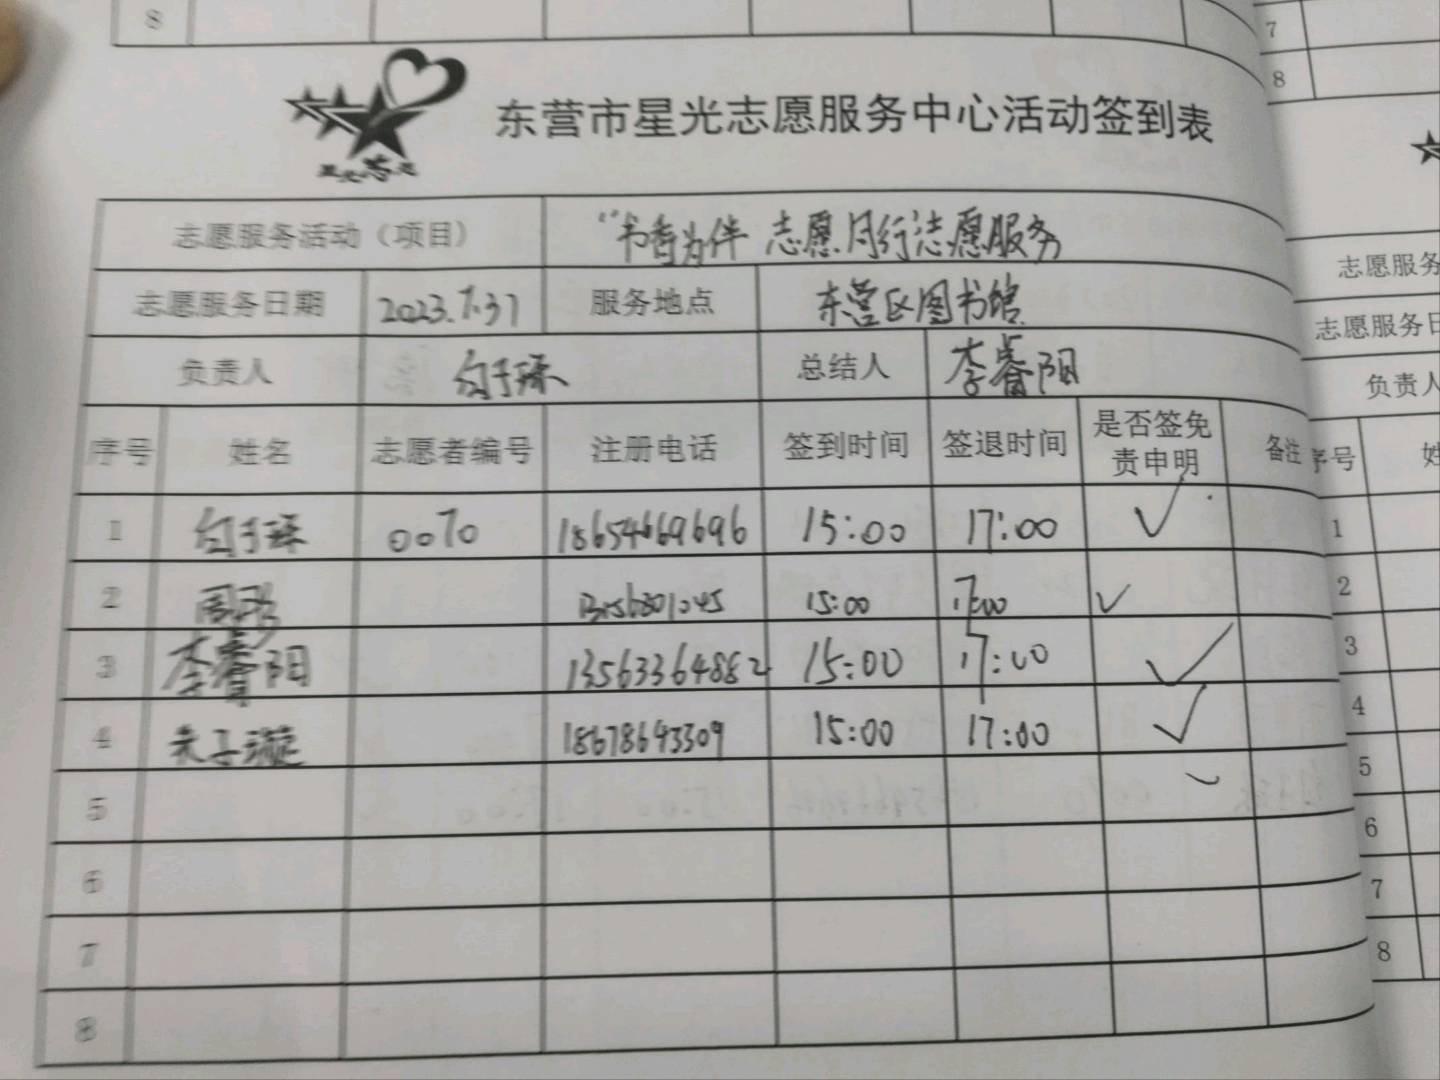 8
7
8
星光志愿
东营市星光志愿服务中心活动签到表
志愿服务活动（项目） “书香为伴 志愿同行志愿服务
志愿服务日期 2023.7.31 服务地点 东营区图书馆
负责人 总结人 李睿阳
序号 姓名 志愿者编号 注册电话 签到时间 签退时间 是否签免责申明 备注
1 0070 18654669696 15:00 17:00 ✓
2 15:00 17:00 ✓
3 李睿阳 13563364882 15:00 17:00 ✓
4 朱子璇 18678643309 15:00 17:00 ✓
5
6
7
8
志愿服务
志愿服务日
负责人
序号 姓
1
2
3
4
5
6
7
8